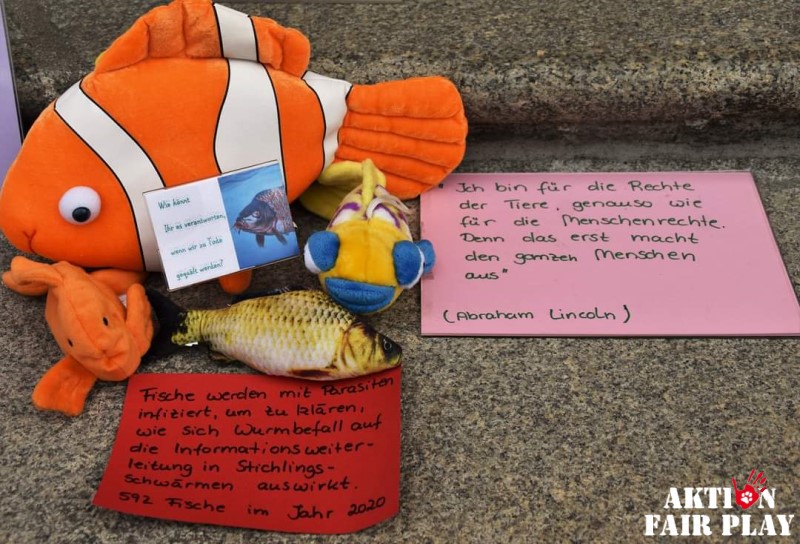 Wie könnt
Ihr es verantworten,
wenn wir zu Tode
gequält werden?
"Ich bin für die Rechte
der Tiere, genauso wie
für die Menschenrechte.
Denn das erst macht
den ganzen Menschen
aus"
(Abraham Lincoln)
Fische werden mit Parasiten
infiziert, um zu klären,
wie sich Wurmbefall auf
die Informationsweiter-
leitung in Stichlings-
schwärmen auswirkt.
592 Fische im Jahr 2020
AKTION
FAIR PLAY